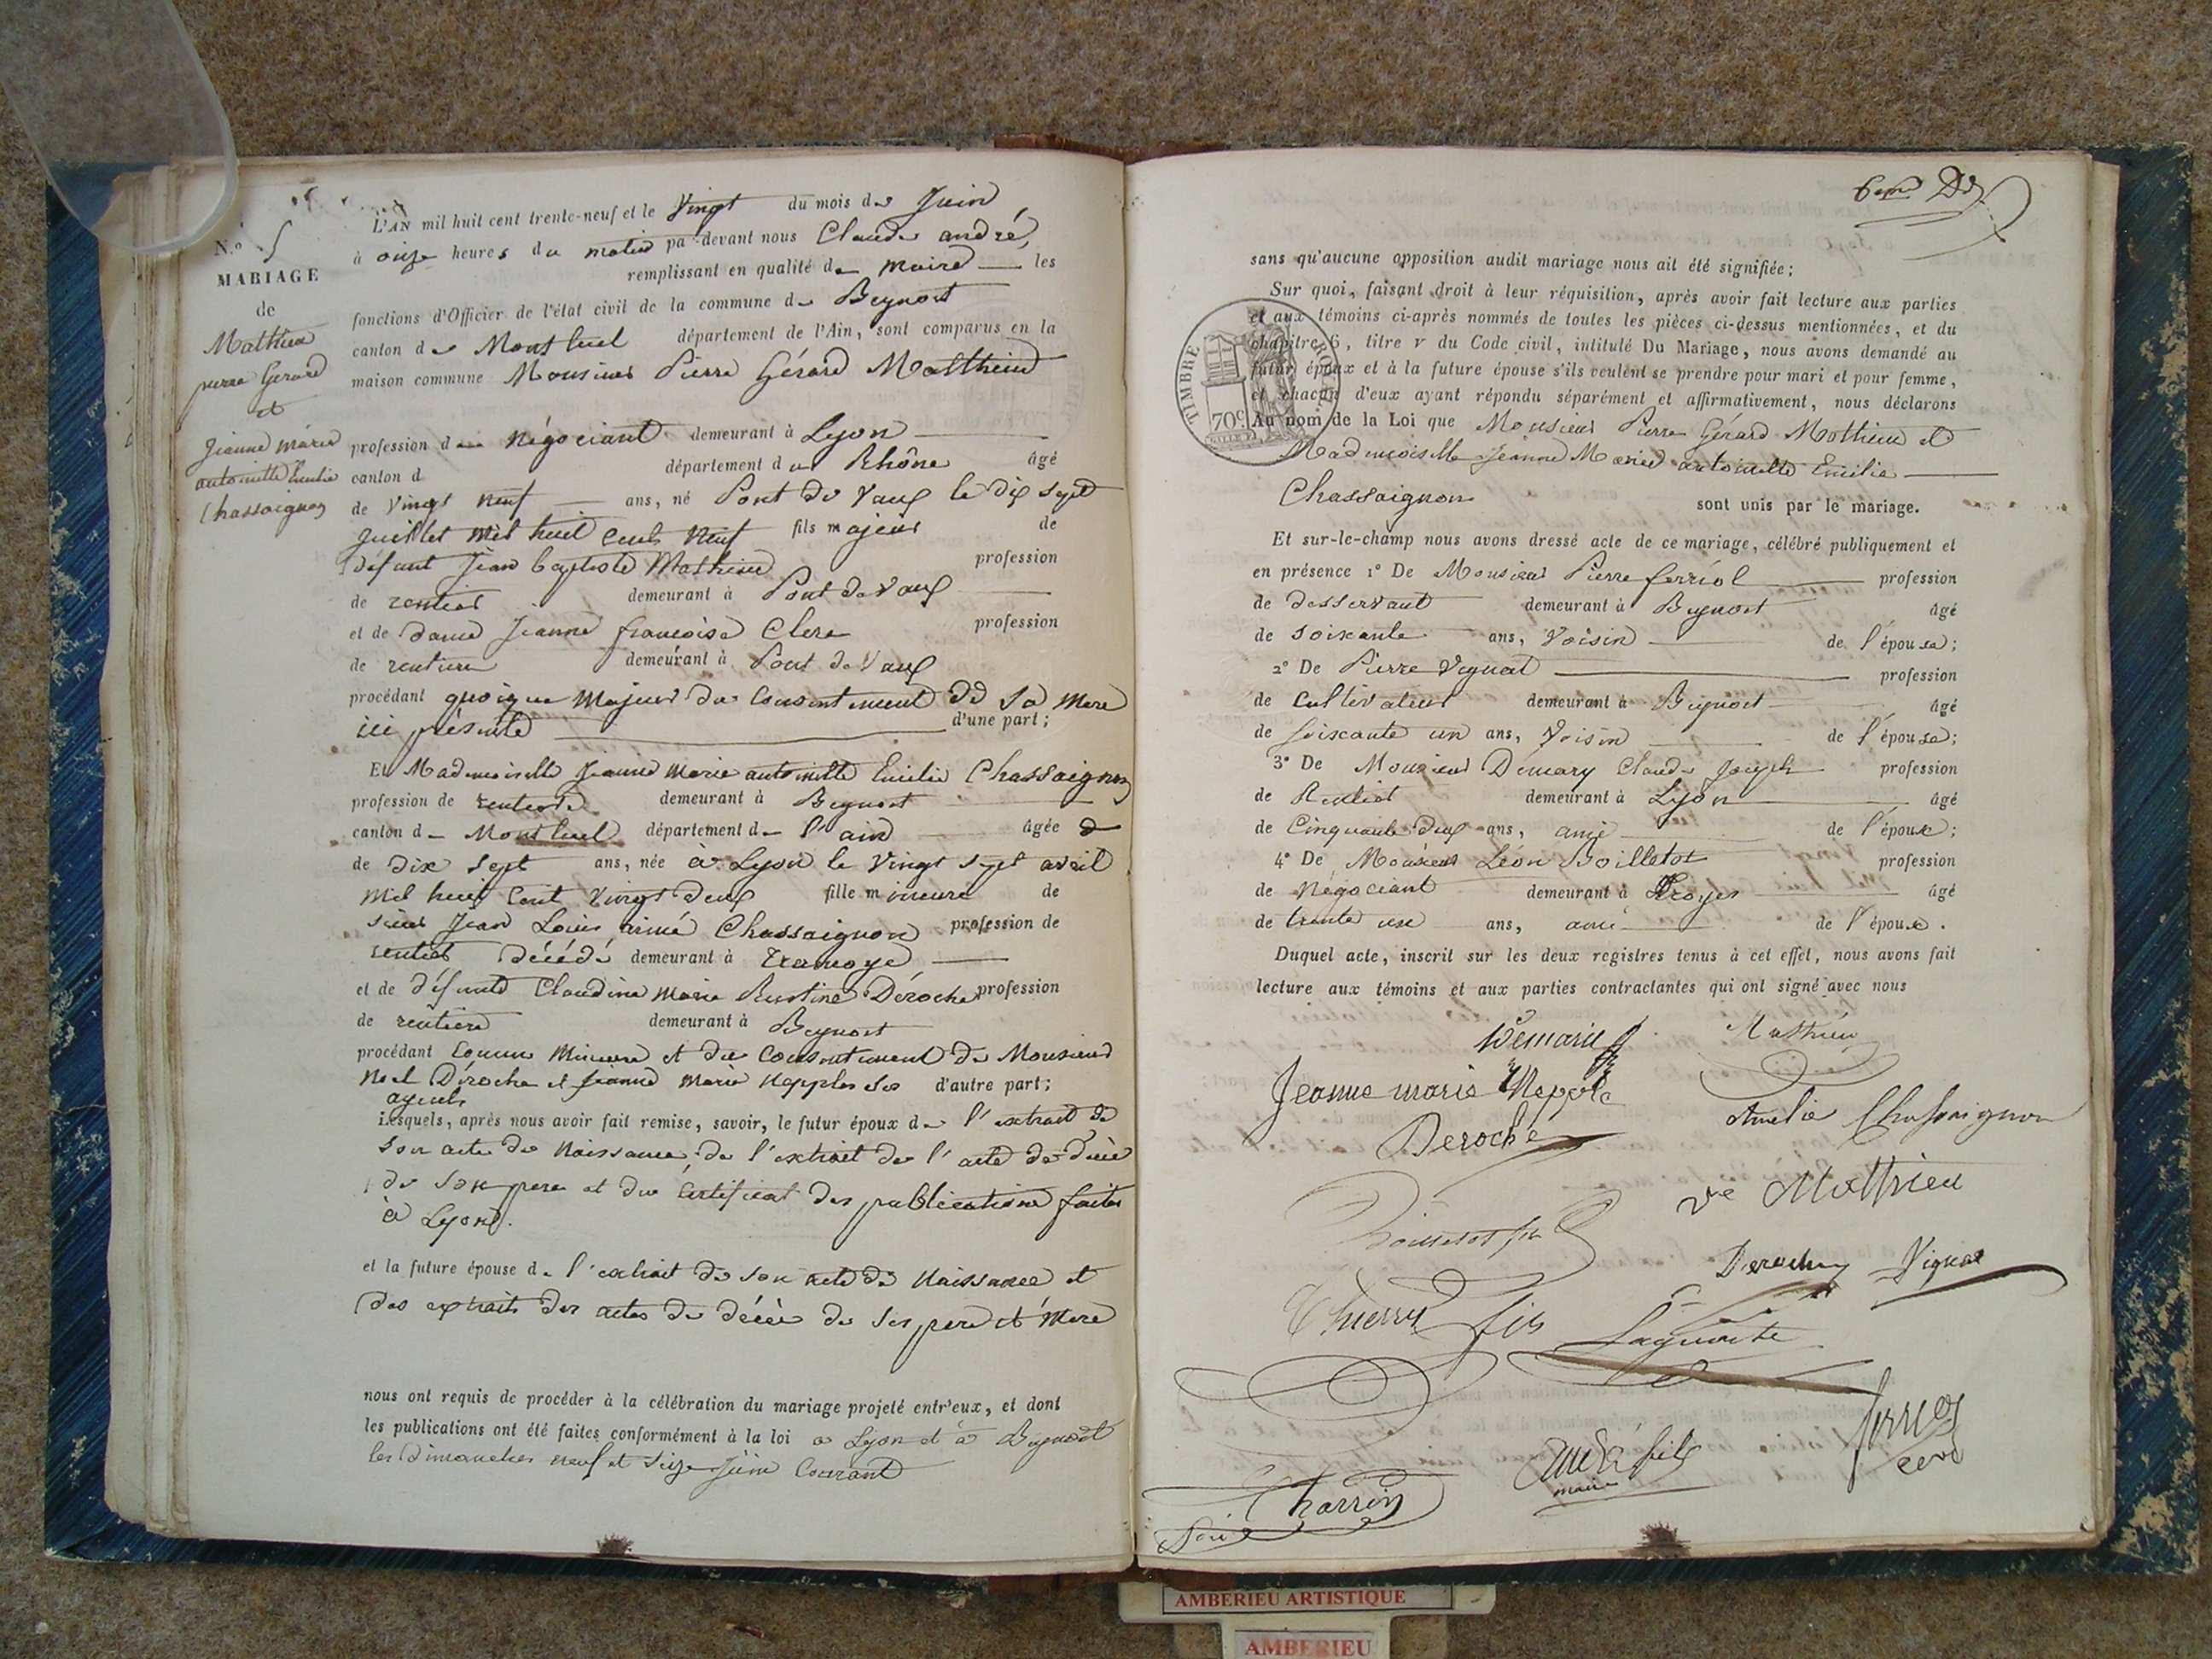 N.o 5
MARIAGE
de
Mathieu
pierre Gerard
et
Jeanne marie
antoinette Emilie
Chassaignon
L'AN mil huit cent trente-neuf et le Vingt du mois de Juin
à onze heures du matin pa devant nous Claude andré,
remplissant en qualité de maire les
fonctions d'Officier de l'état civil de la commune de Beynost
canton de Montluel département de l'Ain, sont comparus en la
maison commune Monsieur Pierre Gérard Matthieu
profession de négociant demeurant à Lyon
canton d département du Rhône âgé
de Vingt neuf ans, né Pont de Vaux le dix sept
Juillet mil huit cent neuf fils majeur de
défunt Jean baptiste Mathieu profession
de rentier demeurant à Pont de Vaux
et de dame Jeanne françoise Clerc profession
de rentiere demeurant à Pont de Vaux
procédant quoique majeur du consentement de sa mere
ici présente d'une part;
Et Mademoiselle Jeanne Marie antoinette Emilie Chassaignon
profession de rentiere demeurant à Beynost
canton de Montluel département de l'ain âgée
de dix sept ans, née à Lyon le Vingt sept avril
mil huit cent vingt deux fille mineure de
sieur Jean Louis aimé Chassaignon profession de
rentier décédé demeurant à Tramoye
et de défunte Claudine Marie Déroche profession
de rentiere demeurant à Beynost
procédant comme mineure et du consentement de Monsieur
Noel Déroche et Jeanne Marie Nepples ses d'autre part;
ayeuls
Lesquels, après nous avoir fait remise, savoir, le futur époux de l'extrait de
son acte de naissance, de l'extrait de l'acte de décès
de son pere et du certificat des publications faites
à Lyon.
et la future épouse de l'extrait de son acte de Naissance et
des extraits des actes de décès de ses pere et mere
nous ont requis de procéder à la célébration du mariage projeté entr'eux, et dont
les publications ont été faites conformément à la loi a Lyon et à Beynost
les dimanches neuf et seize Juin Courant
sans qu'aucune opposition audit mariage nous ait été signifiée;
Sur quoi, faisant droit à leur réquisition, après avoir fait lecture aux parties
et aux témoins ci-après nommés de toutes les pièces ci-dessus mentionnées, et du
chapitre 6, titre v du Code civil, intitulé Du Mariage, nous avons demandé au
futur époux et à la future épouse s'ils veulent se prendre pour mari et pour femme,
et chacun d'eux ayant répondu séparément et affirmativement, nous déclarons
Au nom de la Loi que Monsieur Pierre Gérard Mathieu et
Mademoiselle Jeanne Marie antoinette Emilie
Chassaignon sont unis par le mariage.
TIMBRE ROYAL
70c
Et sur-le-champ nous avons dressé acte de ce mariage, célébré publiquement et
en présence 1° De Monsieur Pierre ferriol profession
de desservant demeurant à Beynost âgé
de soixante ans, Voisin de l'épouse;
2° De Pierre Vignat profession
de cultivateur demeurant à Beynost âgé
de soixante un ans, Voisin de l'épouse;
3° De Monsieur Démary Claude Joseph profession
de Rentier demeurant à Lyon âgé
de Cinquante deux ans, ami de l'époux;
4° De Monsieur Léon Boilletot profession
de négociant demeurant à Troyes âgé
de trente un ans, ami de l'époux.
Duquel acte, inscrit sur les deux registres tenus à cet effet, nous avons fait
lecture aux témoins et aux parties contractantes qui ont signé avec nous
Mathieu
Jeanne marie Nepple
Chassaignon
Deroche
ve Matthieu
Vignat
Thierry fils
André fils
maire
curé
Charrin
AMBERIEU ARTISTIQUE
AMBERIEU